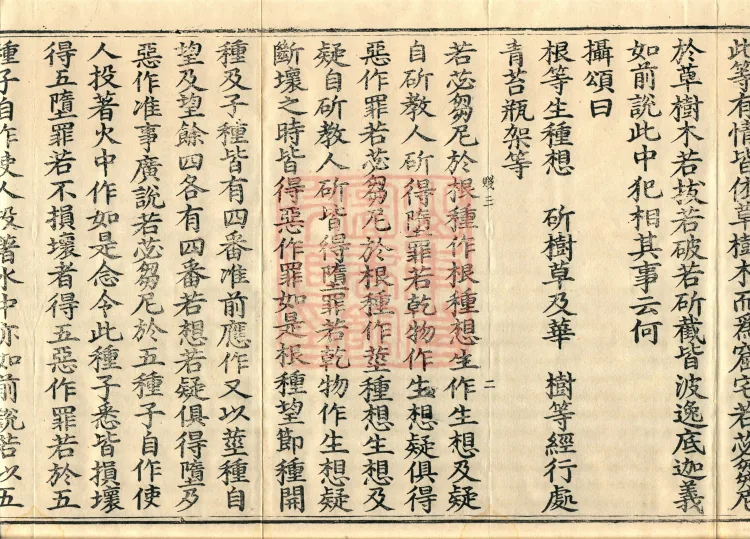 此等有情皆依草樹木而爲窟宅若苾芻尼
於草樹木若拔若破若斫截皆波逸底迦義
如前說此中犯相其事云何
攝頌曰
根等生種想 斫樹草及華 樹等經行處
青苔瓶架等
三 二
若苾芻尼於根種作根種想生作生想及疑
自斫教人斫得墮罪若乾物作生想疑俱得
惡作罪若苾芻尼於根種作莖種想生想及
疑自斫教人斫皆得墮罪若乾物作生想疑
斷壞之時皆得惡作罪如是根種望節種開
種及子種皆有四番准前應作又以莖種自
望及望餘四各有四番若想若疑俱得墮及
惡作准事廣說若苾芻尼於五種子自作使
人投著火中作如是念令此種子悉皆損壞
得五墮罪若不損壞者得五惡作罪若於五
種子自作使人投著水中亦如前說若以五